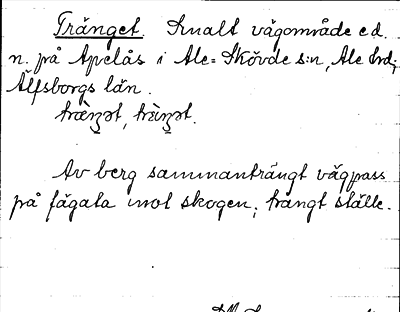 Trånget. Smalt vägområde ed.
n. på Apelås i Ale-Skövde s:n, Ale hd;
Älfsborgs län.
Av berg sammanträngt vägpass
på fägata mot skogen; trångt ställe.